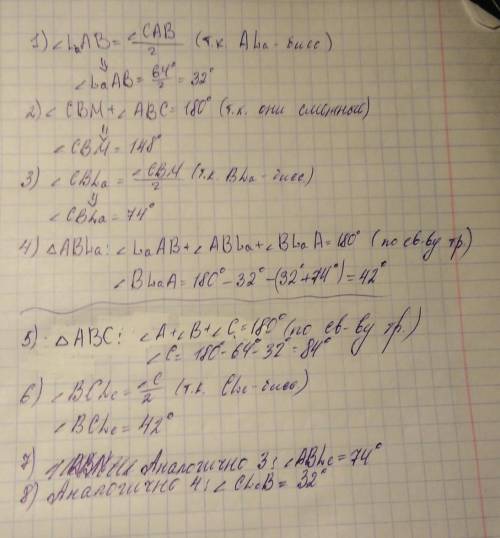 1) ∠LₐAB = ∠CAB/2 (т.к. ALₐ - бисс)
⇓
∠LₐAB = 64°/2 = 32°
2) ∠CBM + ∠ABC = 180° (т.к. они смежный)
⇓
∠CBM = 148°
3) ∠CBLₐ = ∠CBM/2 (т.к BLₐ - бисс.)
⇓
∠CBLₐ = 74°
4) △ABLₐ: ∠LₐAB + ∠ABLₐ + ∠BLₐA = 180° (по св-ву тр.)
∠BLₐA = 180° - 32° - (32° + 74°) = 42°
5) △ABC: ∠A + ∠B + ∠C = 180° (по св-ву тр.)
∠C = 180 - 64 - 32° = 84°
6) ∠BCLc = ∠C/2 (т.к. CLc - бисс)
∠BCLc = 42°
7) Аналогично 3: ∠ABLc = 74°
8) Аналогично 4: ∠CLcB = 32°